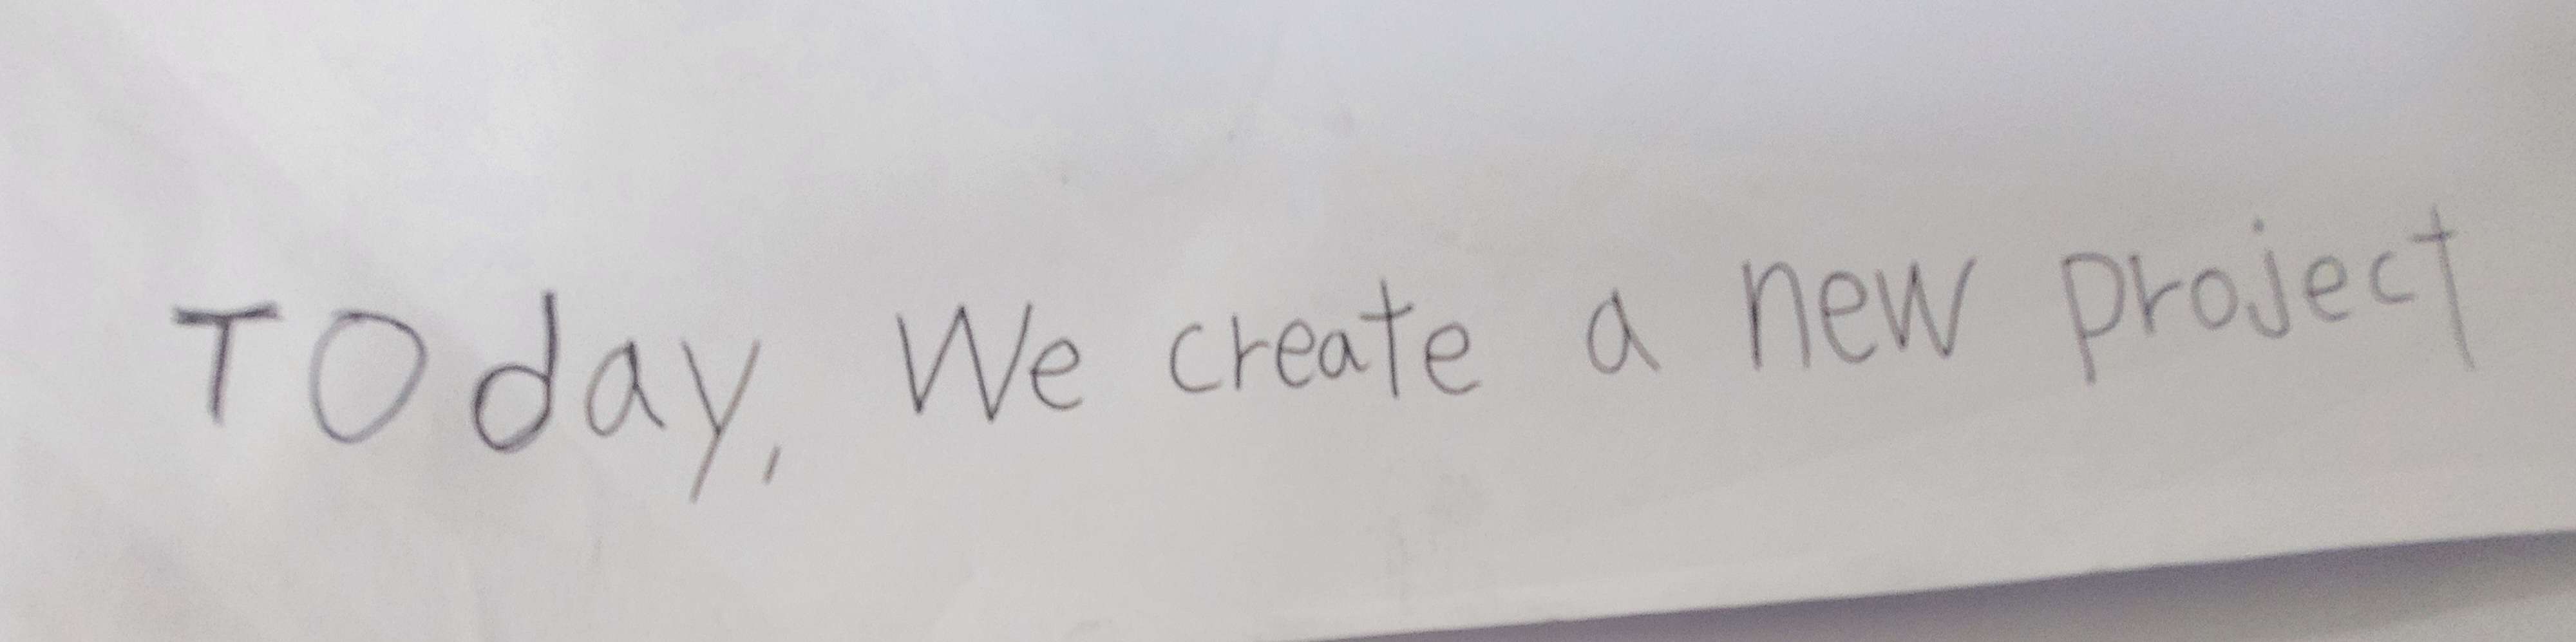 Today, We create a new project